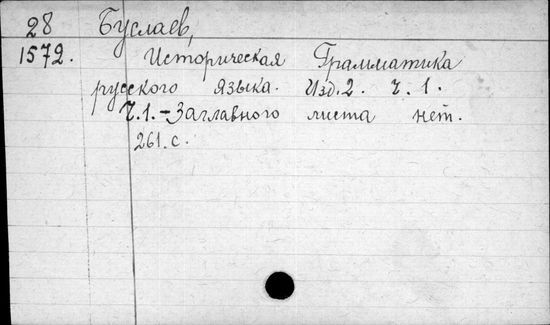 28 Буслаев,
1572. Историческая Грамматика
русского языка. Изд. 2. Ч. 1.
Ч. 1. - Заглавного листа нет.
261. с.